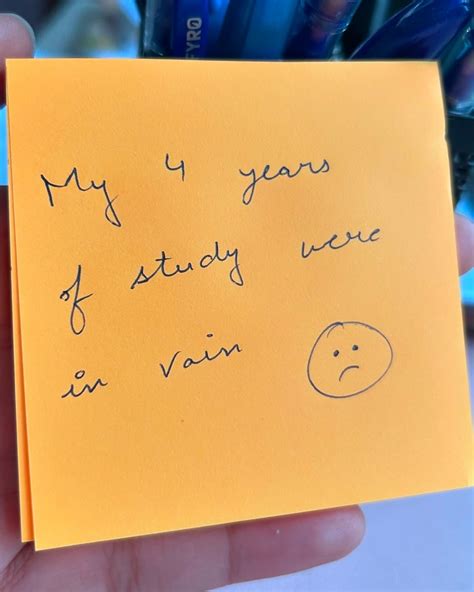 My 4 years
of study were
in vain